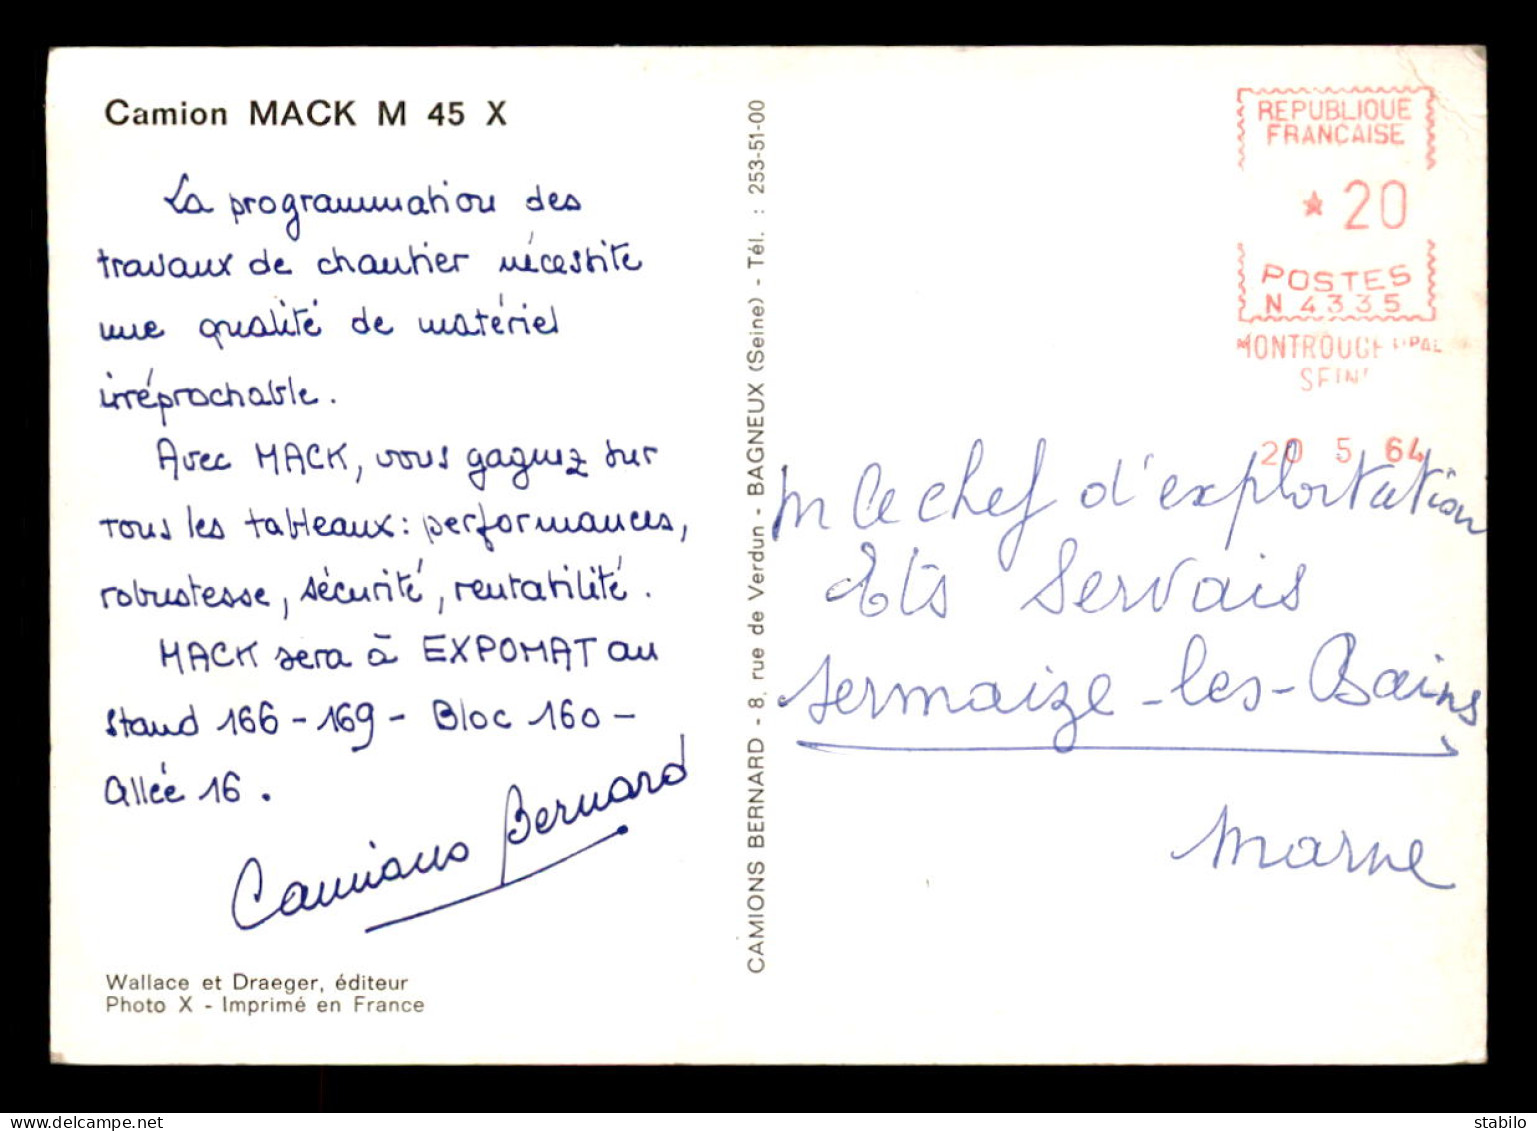 Camion MACK M 45 X
La programmation des
travaux de chantier nécessite
une qualité de matériel
irréprochable.
Avec MACK, vous gagnez sur
tous les tableaux : performances,
robustesse, sécurité, rentabilité.
MACK sera à EXPOMAT au
stand 166 - 169 - Bloc 160 -
Allée 16.
Camions Bernard
Wallace et Draeger, éditeur
Photo X - Imprimé en France
CAMIONS BERNARD - 8, rue de Verdun - BAGNEUX (Seine) - Tél. : 253-51-00
REPUBLIQUE
FRANCAISE
* 20
POSTES
N 4335
MONTROUGE PPAL
SEINE
20 5 64
M le chef d'exploitation
Ets Servais
Sermaize-les-Bains
Marne
www.delcampe.net
stabilo